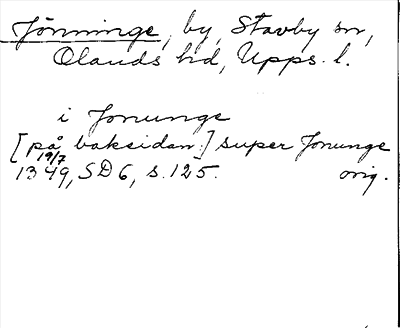 Jönninge, by, Stavby sn,
Olands hd, Upps. l.
i Jonunge
[på baksidan:] super Jonunge
19/7
1349, SD 6, s. 125. orig.